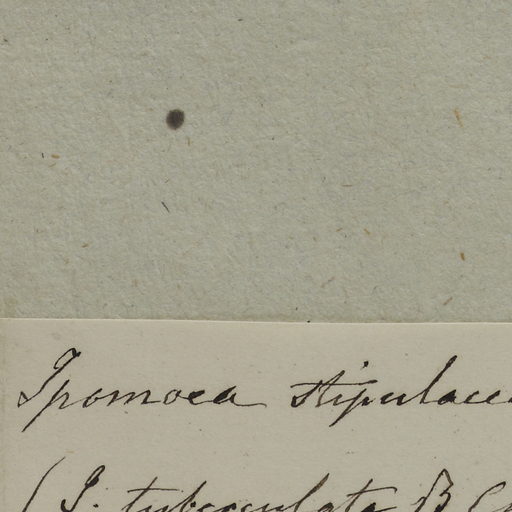 Ipomoea stipulacea
(I. tuberculata β